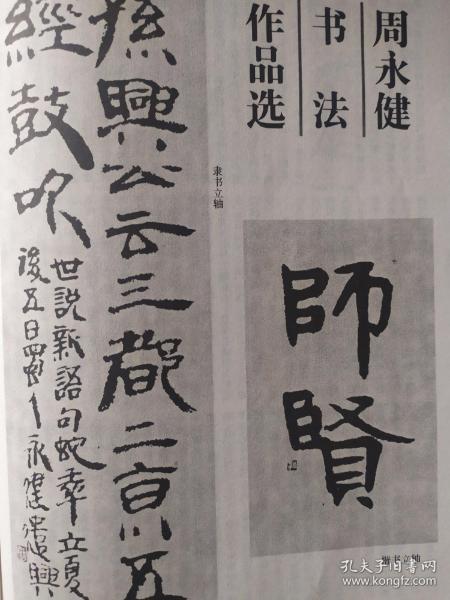 周永健
书法
作品选
孫興公云三都二京五
經鼓吹
世説新語句蛇年立夏
後五日蜀人永健書興
隶书立轴
師賢
楷书立轴
孔夫子旧书网
www.kongfz.com